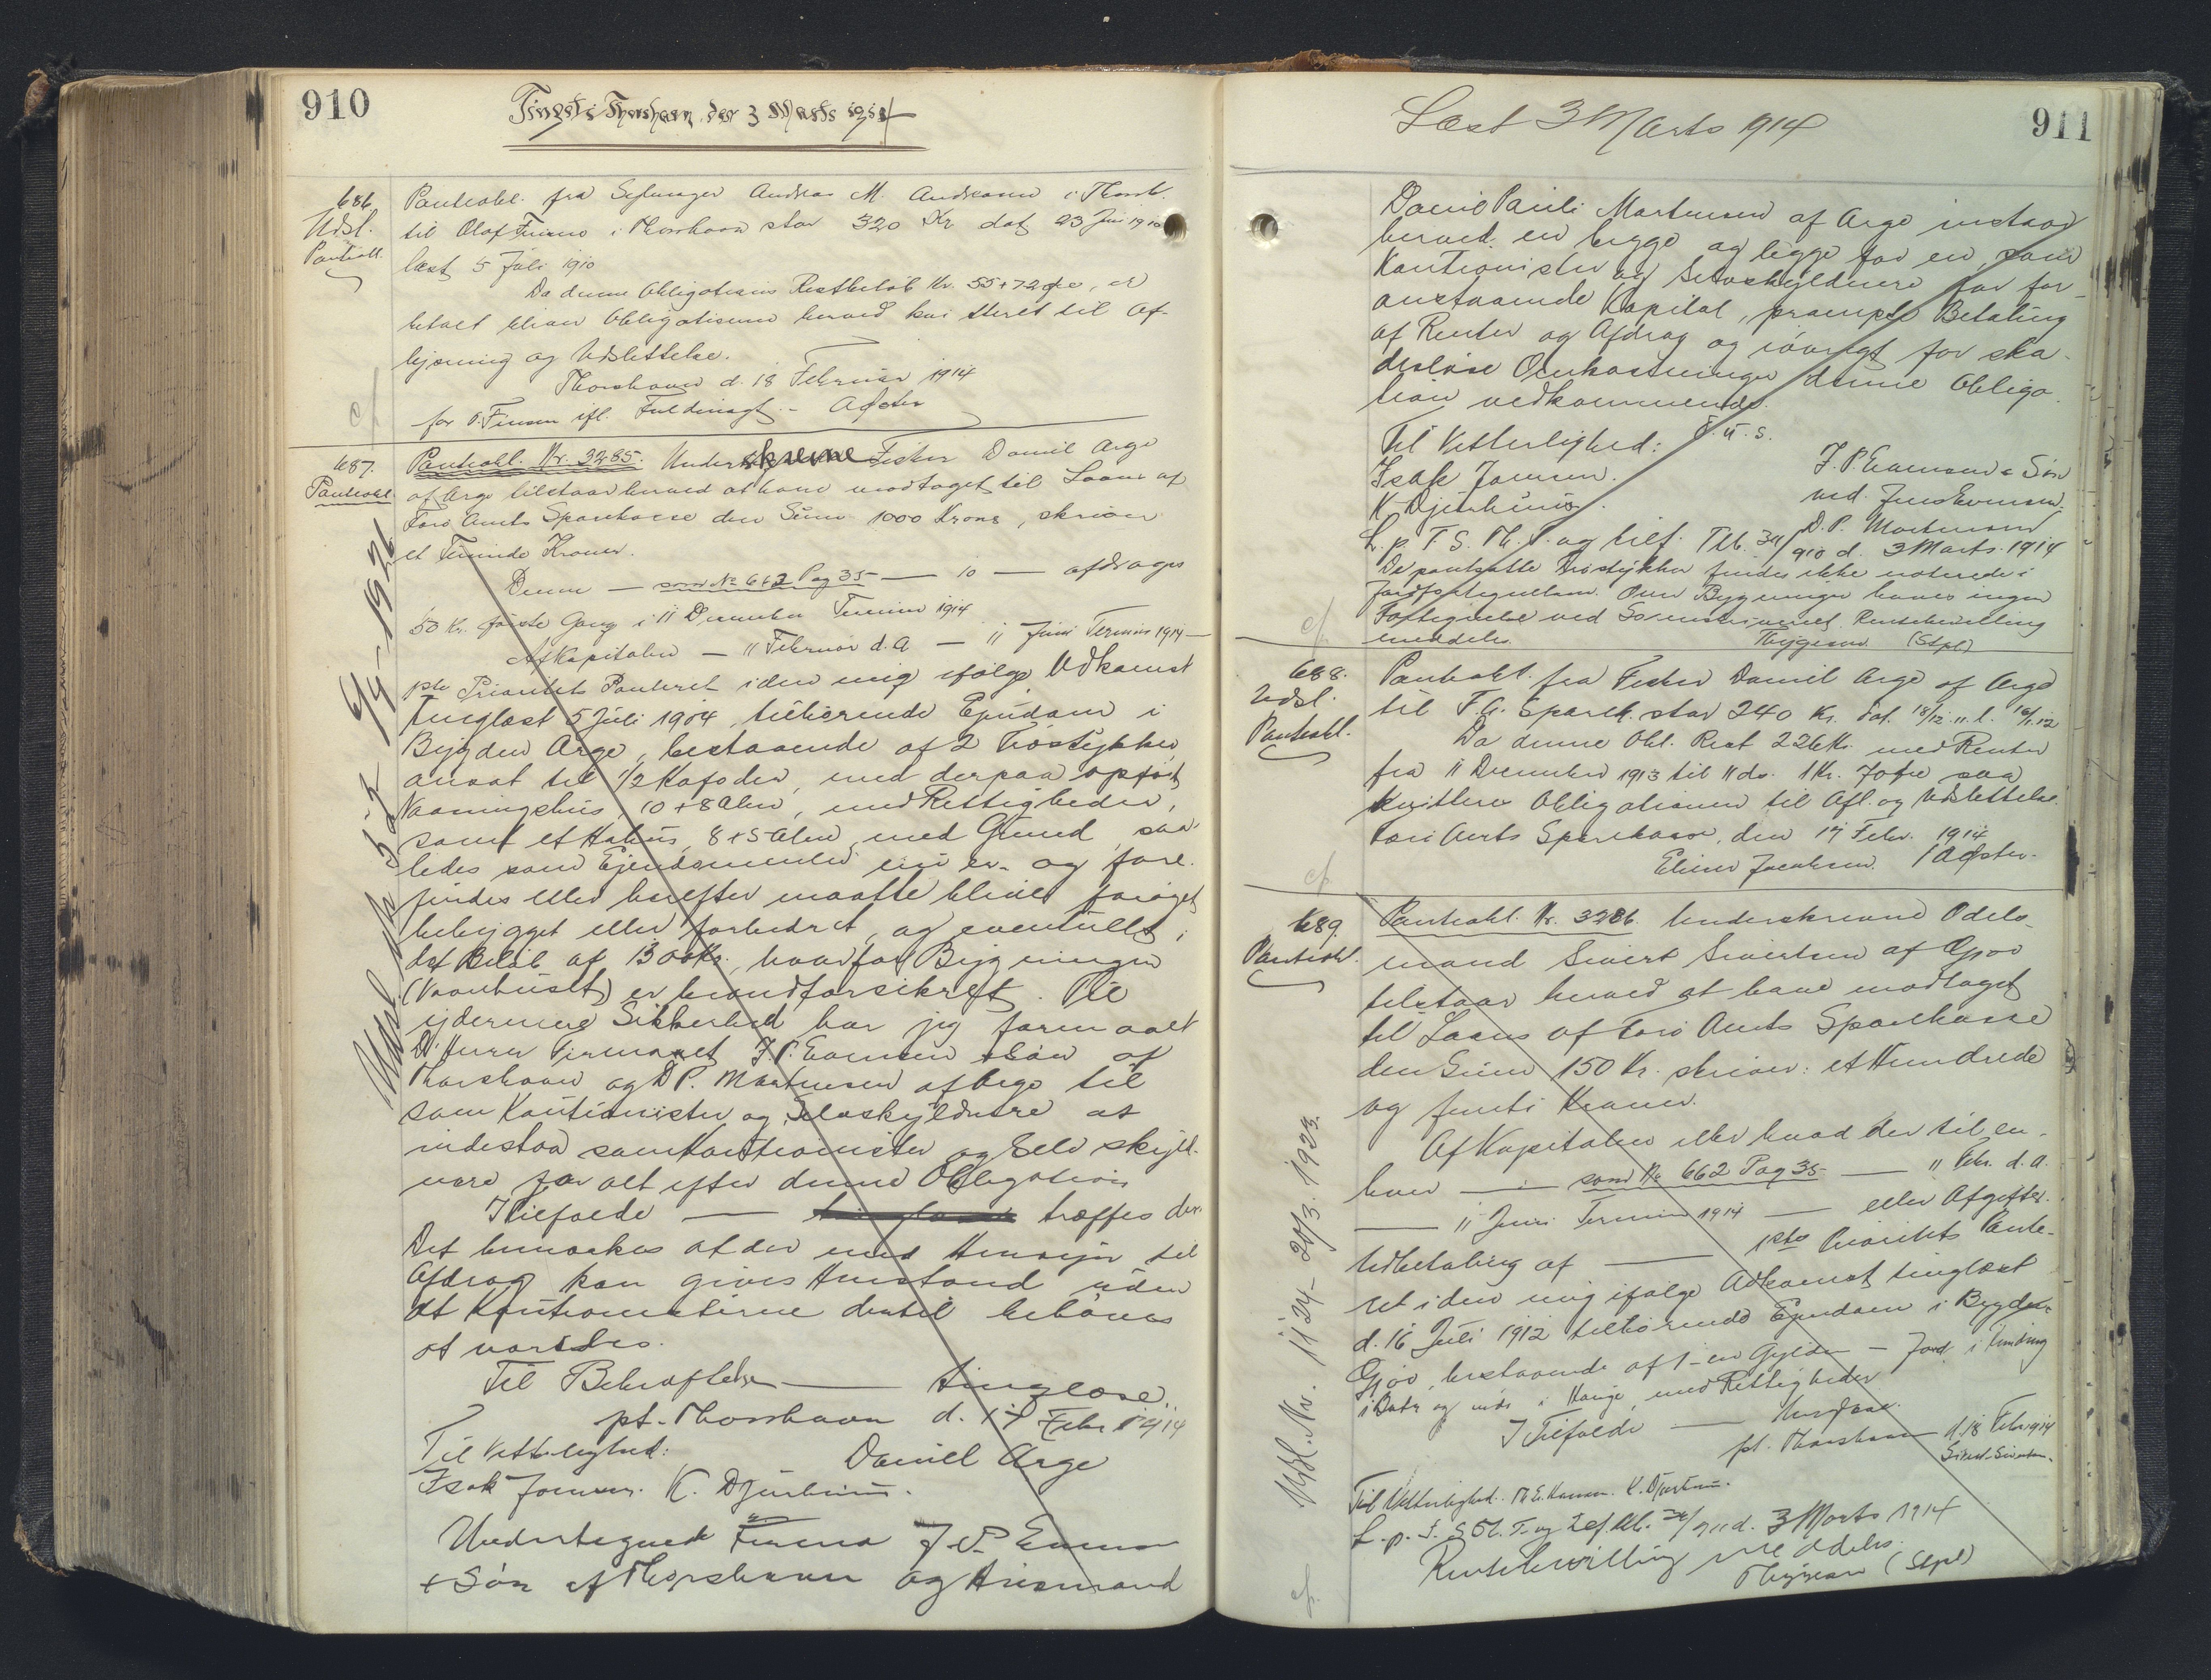 910
Tinget i Thorshavn den 3 Marts 1914
686
Udsl.
Pantobl.
Pantobl. fra Andreas M. Andreasen i Thorsh.
til Olaf Finsen i Thorshavn stor 320 Kr dat 23 Juni 1910
læst 5 Juli 1910
Da denne Obligations Restbeløb Kr. 55+72 Øre, er
betalt bliver Obligationen herved kvitteret til Af-
lysning og Udslettelse.
Thorshavn d. 18 Februar 1914
for O. Finsen ifl. Fuldmagt.
687.
Pantobl.
Pantobl. Nr. 3285. Underskrevne Fisker Daniel Arge
af Arge tilstaar herved at have modtaget til Laans af
Færø Amts Sparekasse den Sum 1000 Kroner, skriver
et Tusinde Kroner.
Denne — som № 662 Pag 35 — 10 — afdrages
50 Kr. første Gang i 11 December Termin 1914
Af Kapitalen — 11 Februar d.A — 11 Juni Termin 1914 —
Prioritets Panteret i den mig ifølge Adkomst
tinglæst 5 Juli 1904, tilhørende Ejendom i
Bygden Arge, bestaaende af 2 Træstykker
ansat til 1/2 Kofoder, med derpaa opført
Vaaningshus, 10+8 Alen, med Rettigheder,
samt et 8+5 Alen med Grund, saa-
ledes som Ejendommen nu er og fore-
findes eller herefter maatte blive forøget
bebygget eller forbedret, og eventuelt i
det Beløb af 1300 Kr., hvorfor Bygningen
(Vaanhuset) er brandforsikret. Til
ydermere Sikkerhed har jeg formaaet
D'Herrer Firmaet J. P. Evensen & Søn af
Thorshavn og D P. Mortensen af Arge til
som Kautionister og Selvskyldnere at
indestaa som Kautionister og Selv skyld-
nere for alt efter denne Obligation
I Tilfælde — træffes der.
Det bemærkes at der med Hensyn til
Afdrag kan gives Henstand uden
at Kautionisterne dertil behøves
at varsles.
Til Bekræftelse — tinglæse.
pt. Thorshavn d. 17 Febr 1914
Til Vitterlighed:
Daniel Arge
Isak Joensen. K. Djurhuus.
Undertegnede Firma J. P. Evensen
+ Søn af Thorshavn og Husmand
Udsl. Nr 532 9/4-1926
911
Læst 3 Marts 1914
Daniel Pauli Mortensen af Arge indstaar
herved en begge og begge for en, som
Kautionister og Selvskyldnere for for-
anstaaende Kapital, prompte Betaling
af Renter og Afdrag og iøvrigt for ska-
desløse Omkostninger denne Obliga-
tion vedkommende.
D. u. s.
Til Vitterlighed:
Isak Joensen.
K. Djurhuus.
J. P. Evensen & Søn
ved. Jens Evensen.
D. P. Mortensen
L. p. T. S. Th. T. og tilf. Tlb. 34/910 d. 3 Marts 1914
De pantsatte Træstykker findes ikke noterede i
Jordfortegnelsen. Over Bygninger haves ingen
Fortegnelse ved Sorenskriveriet. Rentebevilling
meddeles.
Thygesen (Stpl)
688.
Udsl.
Pantobl.
Pantobl. fra Fisker Daniel Arge af Arge
til F. A. Sparek. stor 240 Kr. dat. 18/12 11 l. 16/1.12
Da denne Obl. Rest 226 Kr. med Renter
fra 11 December 1913 til 11 ds. 1 Kr. 70 Øre saa
kvitteres Obligationen til Afl. og Udslettelse.
Færø Amts Sparekasse, den 17 Febr. 1914
689.
Pantobl.
Pantobl. Nr. 3286. Underskrevne Odels-
mand Sivert Sivertsen af Gjov
tilstaar herved at have modtaget
til Laans af Færø Amts Sparekasse
den Sum 150 Kr. skriver: et Hundrede
og femti Kroner.
Af Kapitalen eller hvad der til en-
hver — som № 662 Pag 35 — 11 Febr. d.A.
— 11 Juni Termin 1914 — eller Afgifter
Udbetaling af — 1ste Prioritets Pante-
ret i den mig ifølge Adkomst tinglæst
d. 16 Juli 1912 tilhørende Ejendom i Bygden
Gjov, bestaaende af 1- en Gylden — Jord i
med Rettigheder
I Tilfælde —
pt. Thorshavn d. 18 Febr 1914
Sivert Sivertsen.
Til Vitterlighed. K. Djurhuus.
L. p. T. S Th. T. og 3 Marts 1914
Rentebevilling meddeles.
Thygesen (Stpl)
Udsl. Nr. 1124- 20/3.1923.